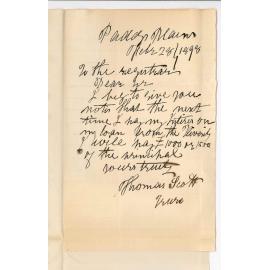 Paddy Plains
Octr 28/1898
To the registrar
Dear Sr
I beg to give you
notes that the next
time I pay my interest on
my loan from the
I will pay £ 1000 or 1500
of the prinsipal
yours truly
Thomas Scott